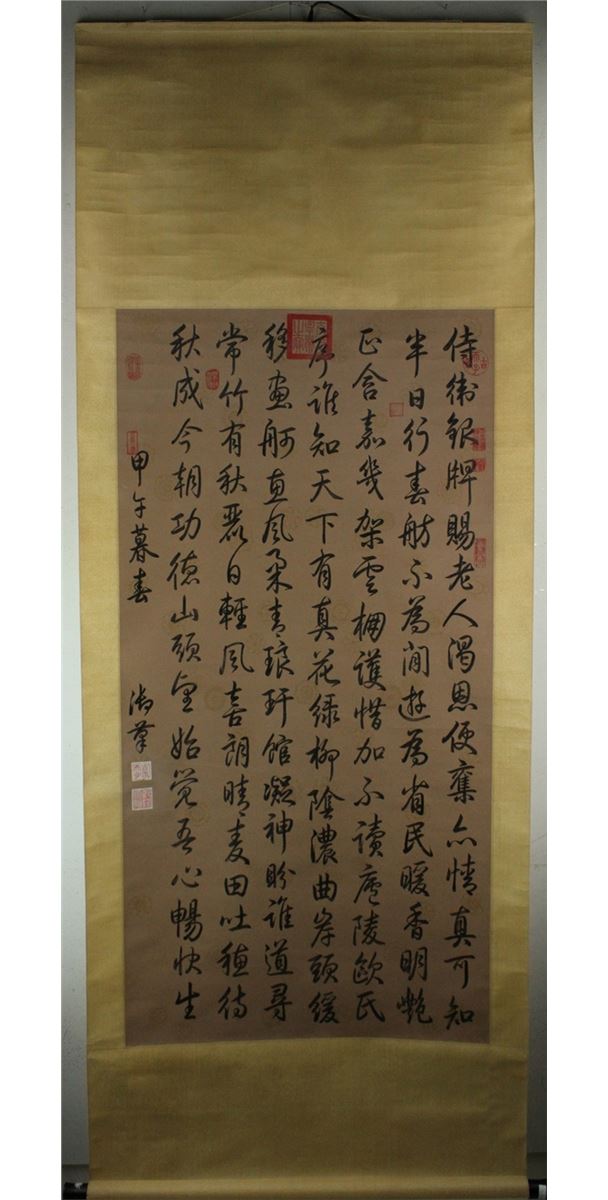 侍衛銀牌賜老人渴恩便奪亦情真可知
半日行春舫不為閒遊為省民暖香明艷
正含嘉幾架雲棚護惜加不讀廬陵歐氏
序誰知天下有真花綠柳陰濃曲岸頭緩
移畫舸惠風柔青琅玕館凝神盼誰道尋
常竹有秋麗日輕風喜朗晴麥田吐穗待
秋成今朝功德山頭望始覺吾心暢快生
甲午暮春 御筆